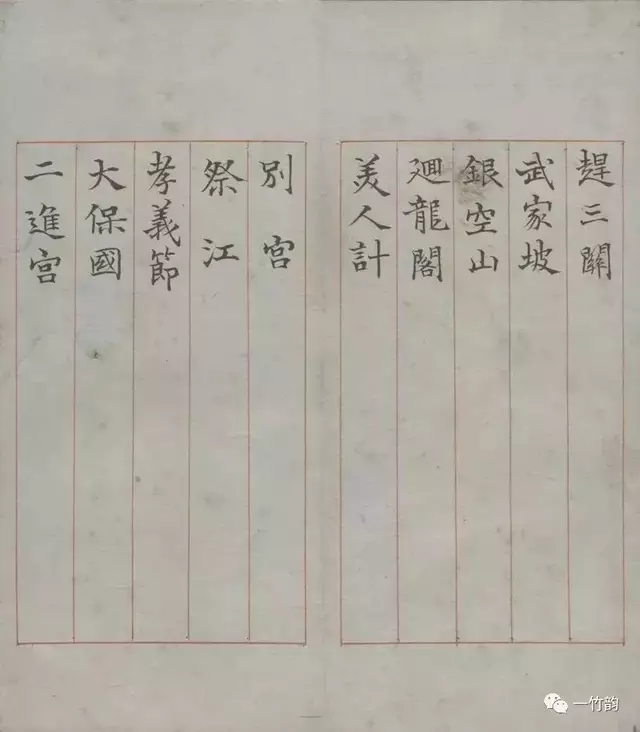 趕三關
武家坡
銀空山
迴龍閣
美人計
別宮
祭江
孝義節
大保國
二進宮
一竹韵